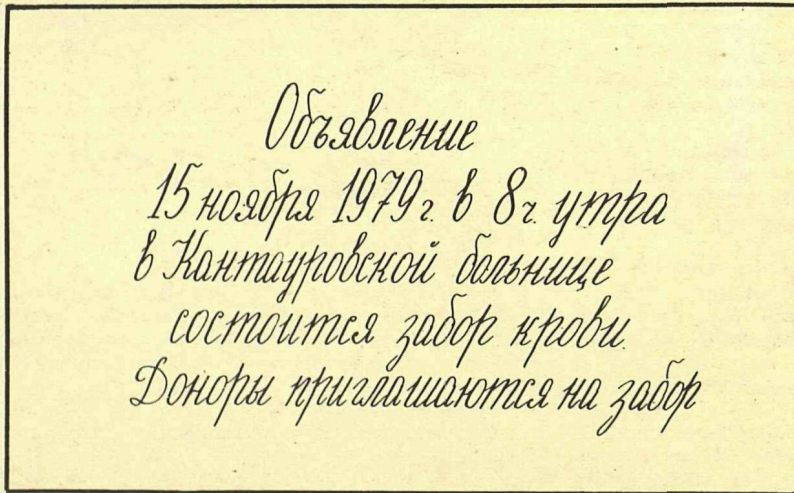 Объявление
15 ноября 1979 г. в 8 ч. утра
в Кантауровской больнице
состоится забор крови.
Доноры приглашаются на забор